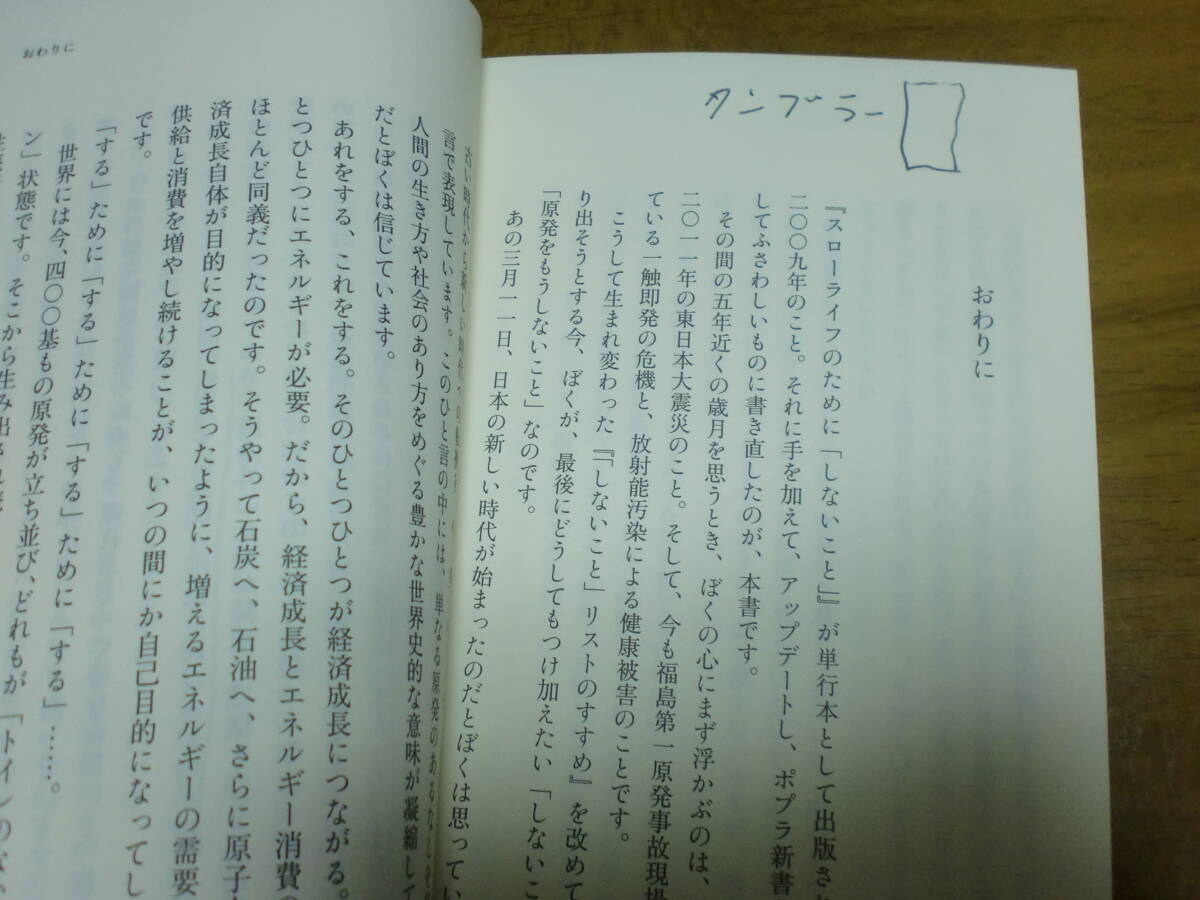 タンブラー
おわりに
『スローライフのために「しないこと」』が単行本として出版さ
二〇〇九年のこと。それに手を加えて、アップデートし、ポプラ新書
してふさわしいものに書き直したのが、本書です。
その間の五年近くの歳月を思うとき、ぼくの心にまず浮かぶのは、
二〇一一年の東日本大震災のこと。そして、今も福島第一原発事故現場
ている一触即発の危機と、放射能汚染による健康被害のことです。
こうして生まれ変わった『「しないこと」リストのすすめ』を改めて
り出そうとする今、ぼくが、最後にどうしてもつけ加えたい「しないこ
「原発をもうしないこと」なのです。
あの三月一一日、日本の新しい時代が始まったのだとぼくは思ってい
おわりに
古い時代から新しい時代への
言で表現しています。このひと言の中には、単なる原発のあるなしを
人間の生き方や社会のあり方をめぐる豊かな世界史的な意味が凝縮し
だとぼくは信じています。
あれをする、これをする。そのひとつひとつが経済成長につながる。
とつひとつにエネルギーが必要。だから、経済成長とエネルギー消費の
ほとんど同義だったのです。そうやって石炭へ、石油へ、さらに原子
済成長自体が目的になってしまったように、増えるエネルギーの需要
供給と消費を増やし続けることが、いつの間にか自己目的になってし
です。
「する」ために「する」ために「する」ために「する」……。
世界には今、四〇〇基もの原発が立ち並び、どれもが「トイレのな
ン」状態です。そこから生み出され